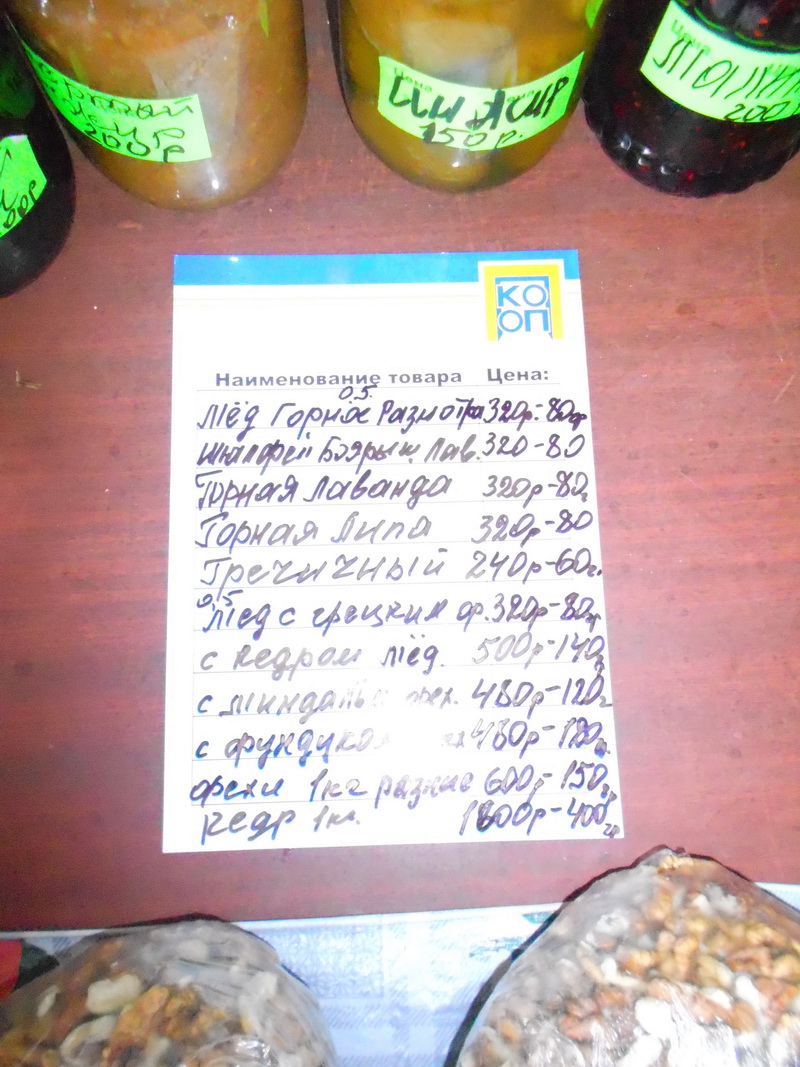 200р
Цена
Инжир
150р.
Цена
200
КО
ОП
Наименование товара Цена:
0,5.
Мёд Горное Разнотра 320р.-80гр
Шалфей Боярыш. Лав. 320-80
Горная Лаванда 320р-80г
Горная Липа 320р-80
Гречичный 240р-60г.
0,5
Мёд с грецким ор. 320р-80гр
с кедром мёд. 500р-140г
с орех. 480р-120г
с 480р-120г.
орехи 1кг разные 600р-150гр
кедр 1кг. 1800р-400гр